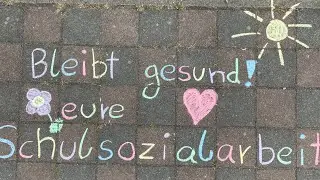 Bleibt gesund!
eure
Schulsozialarbeit